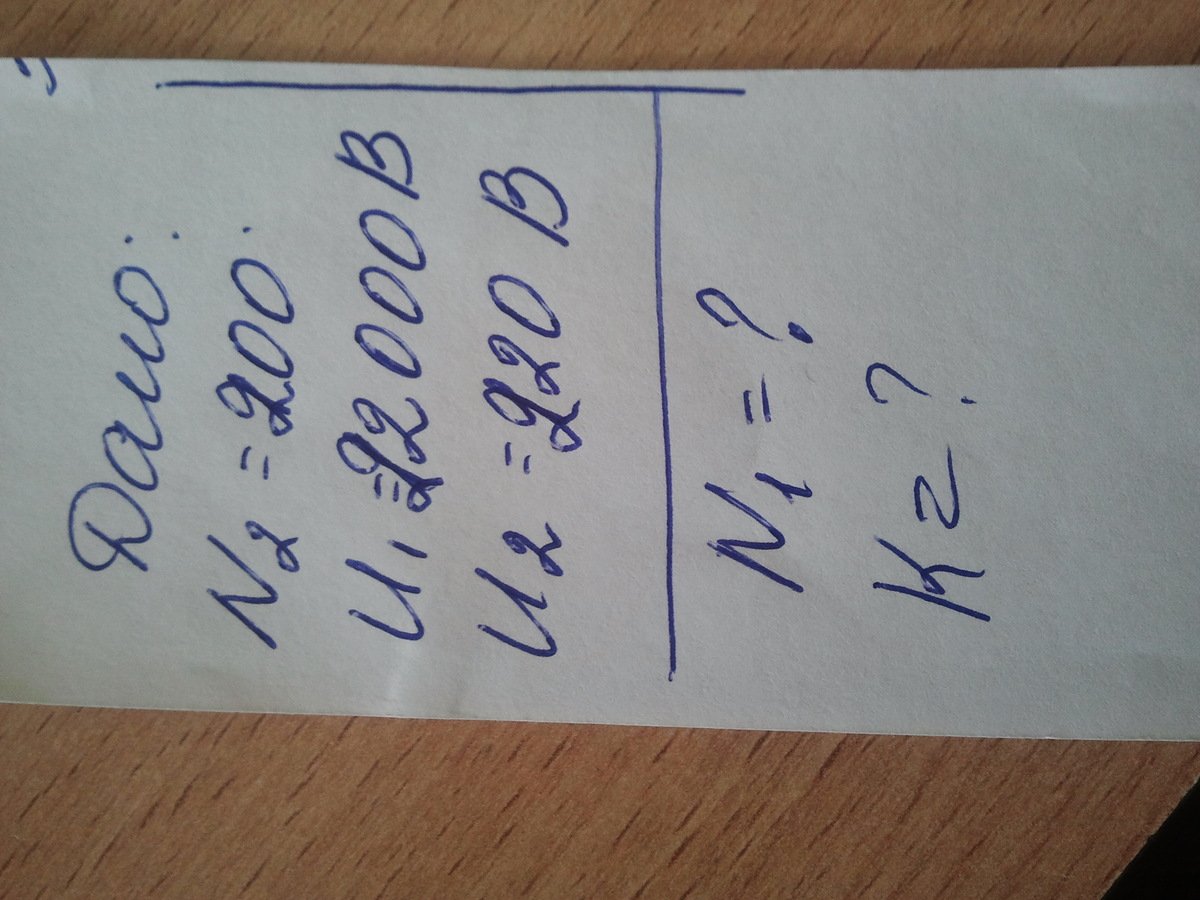 Дано:
N₂ = 200.
U₁ = 22000 В
U₂ = 220 В
N₁ = ?
K = ?